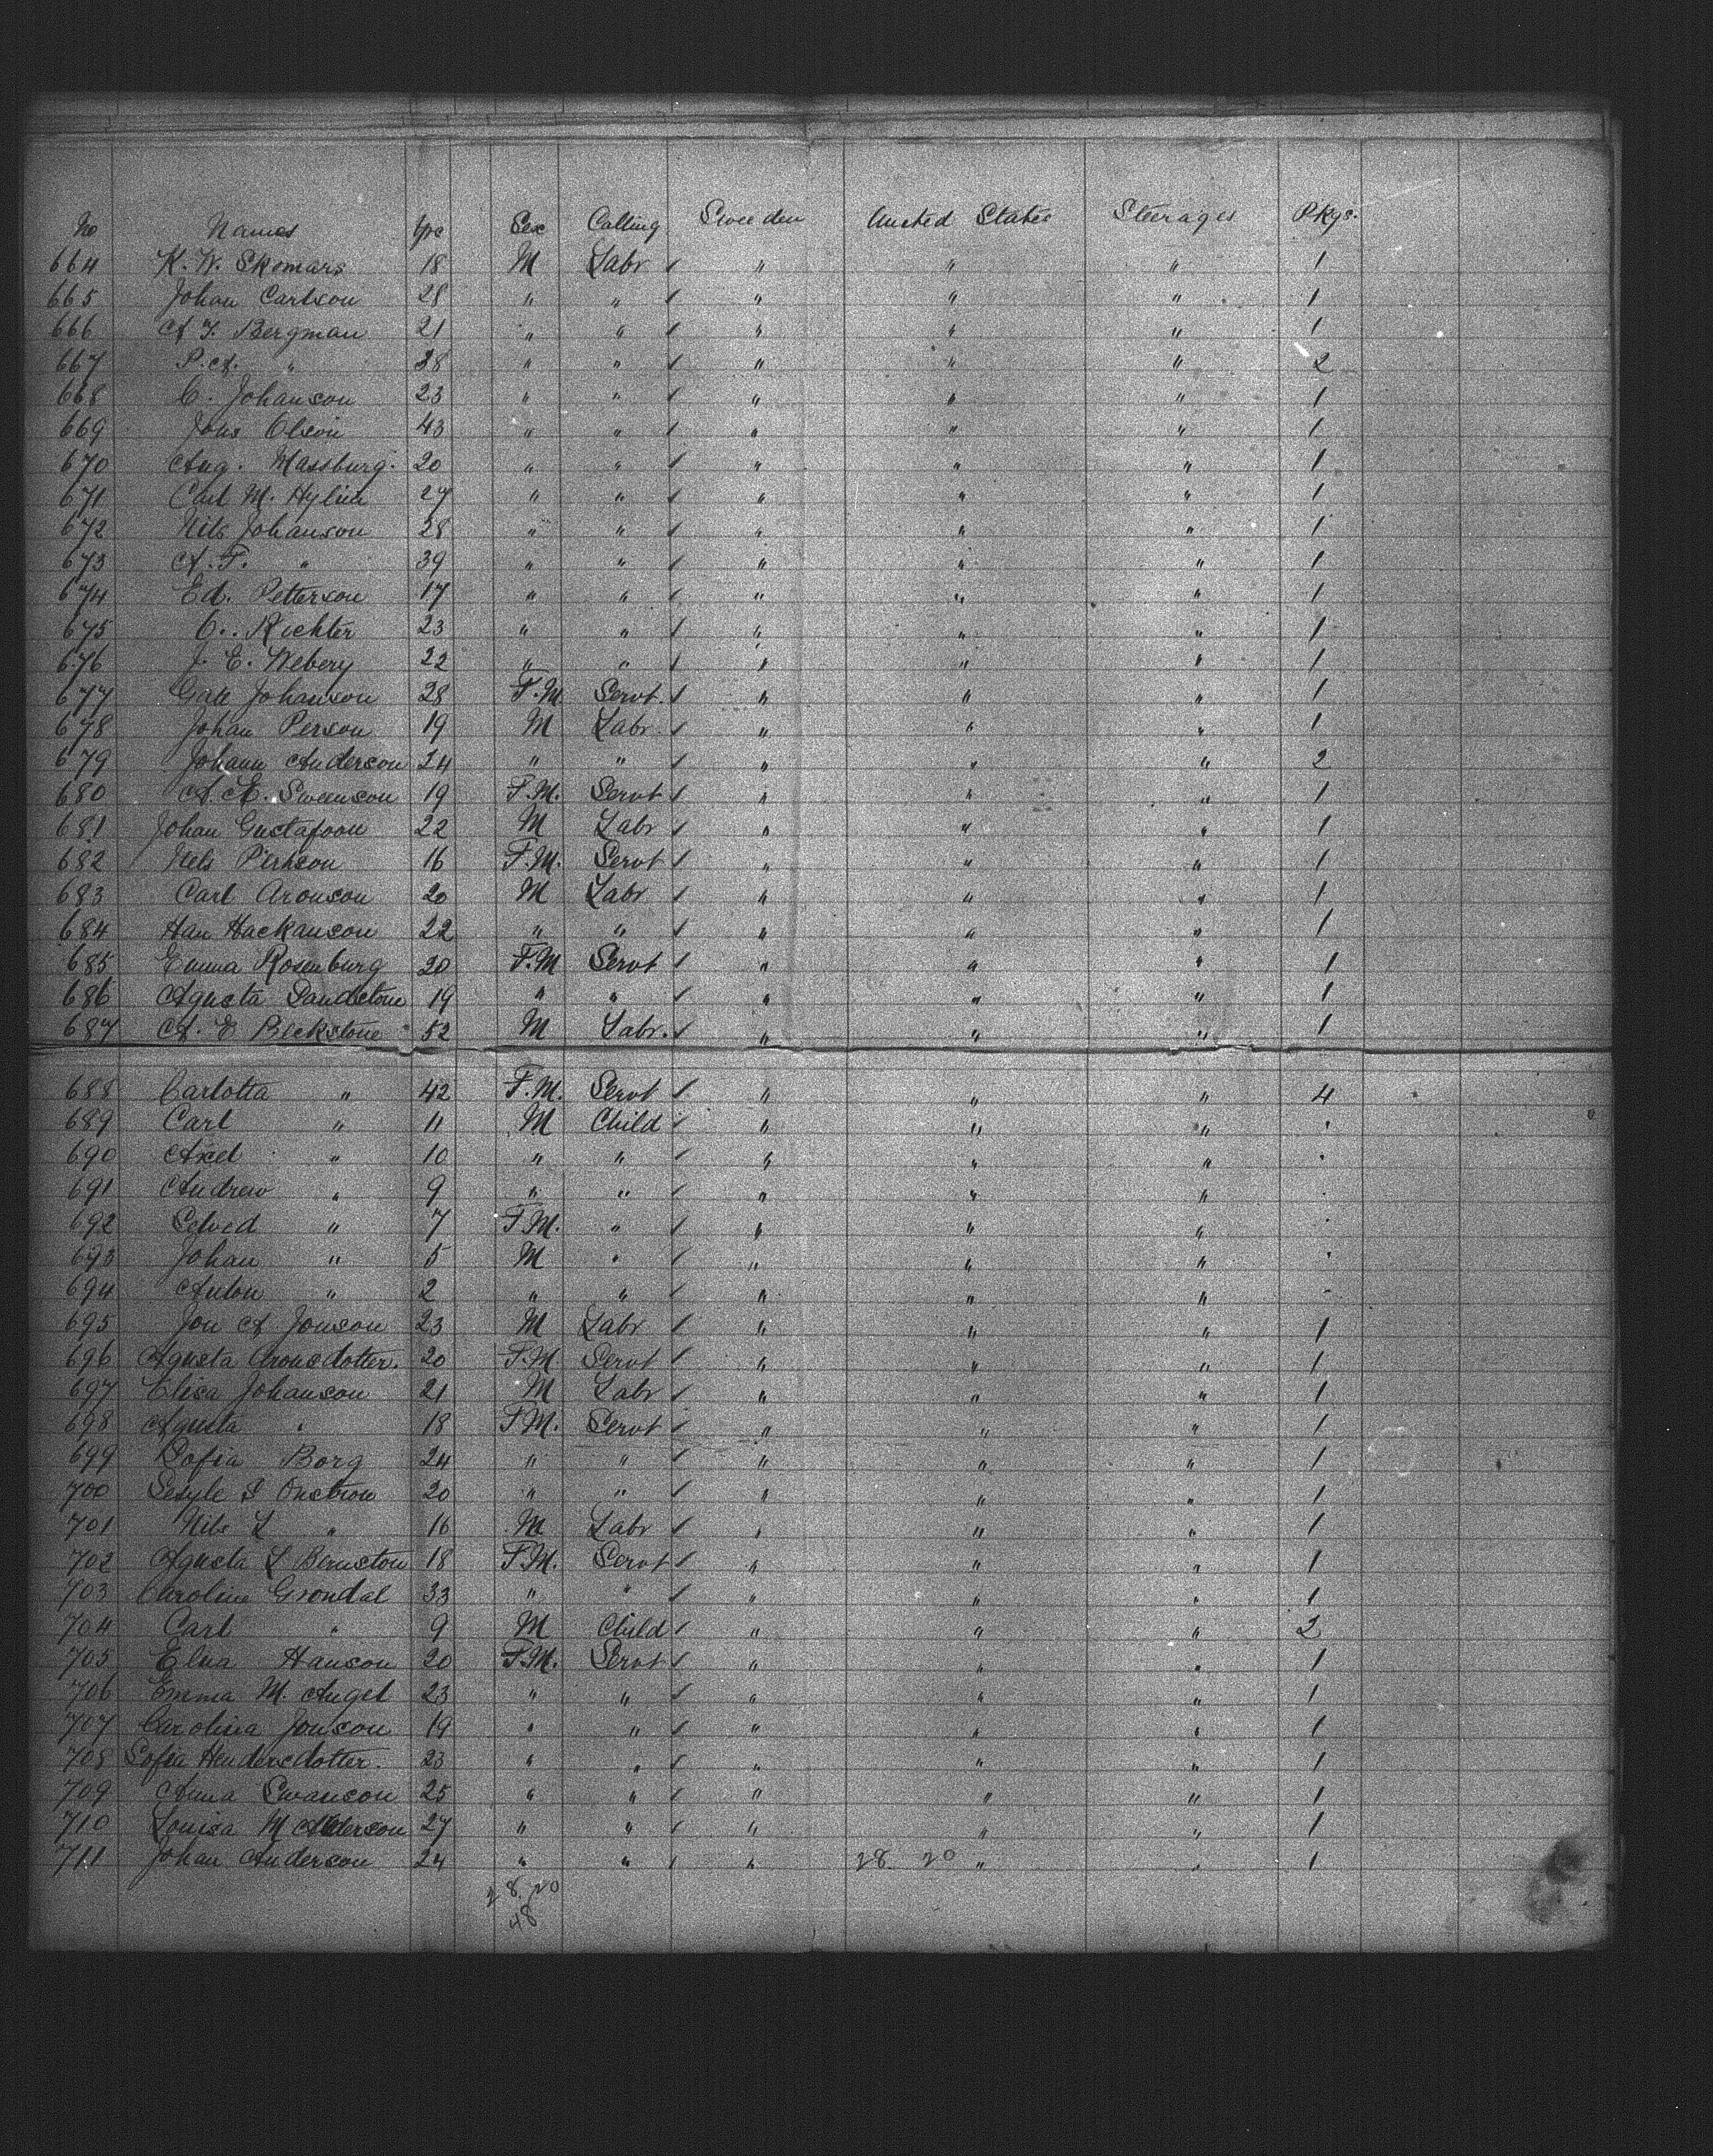 No Names yrs Sex Calling Sweeden United States Steerages Pkgs.
664 K. W. Skomars 18 M Labr " " " 1
665 Johan Carlson 28 " " " " " 1
666 A F. Bergman 21 " " " " " 1
667 P. A. " 38 " " " " " 2
668 C. Johanson 23 " " " " " 1
669 Jons Olson 43 " " " " " 1
670 Aug. Massburg. 20 " " " " " 1
671 Carl M. Hylin 27 " " " " " 1
672 Nils Johanson 28 " " " " " 1
673 A. F. " 39 " " " " " 1
674 Ed. Petterson 17 " " " " " 1
675 C. Richter 23 " " " " " 1
676 J. E. Webery 22 " " " " " 1
677 Johanson 28 F.M. Servt. " " " 1
678 Johan Person 19 M Labr. " " " 1
679 Johann Anderson 24 " " " " " 2
680 A. Sweenson 19 F.M. Servt " " " 1
681 Johan Gustafson 22 M Labr " " " 1
682 Nels Pirhson 16 F.M. Servt " " " 1
683 Carl Aronson 20 M Labr " " " 1
684 Han Hackanson 22 " " " " " 1
685 Emma Rosenburg 20 F.M Servt " " " 1
686 Agusta Sandstone 19 " " " " " 1
687 A. E Beckstone 52 M Labr. " " " 1
688 Carlotta " 42 F.M. Servt " " " 4
689 Carl " 11 M Child " " "
690 Axel " 10 " " " " "
691 Andrew " 9 " " " " "
692 Selved " 7 F.M. " " " "
693 Johan " 5 M " " " "
694 Anton " 2 " " " " "
695 Jon A Jonson 23 M Labr " " " 1
696 Agusta Aronsdotter. 20 F.M. Servt " " " 1
697 Elisa Johanson 21 M Labr " " " 1
698 Agusta " 18 F.M. Servt " " " 1
699 Sofia Borg 24 " " " " " 1
700 20 " " " " " 1
701 Nils L " 16 M Labr " " " 1
702 Agusta L Bernston 18 F.M. Servt " " " 1
703 Caroline Grondal 33 " " " " " 1
704 Carl " 9 M Child " " " 2
705 Elna Hanson 20 F.M. Servt " " " 1
706 Emma M. Angel 23 " " " " " 1
707 Carolina Jonson 19 " " " " " 1
708 Sofia Hendersdotter. 23 " " " " " 1
709 Anna Swanson 25 " " " " " 1
710 Louisa M Anderson 27 " " " " " 1
711 Johan Anderson 24 " " " 28 20 " " 1
28. 20
48